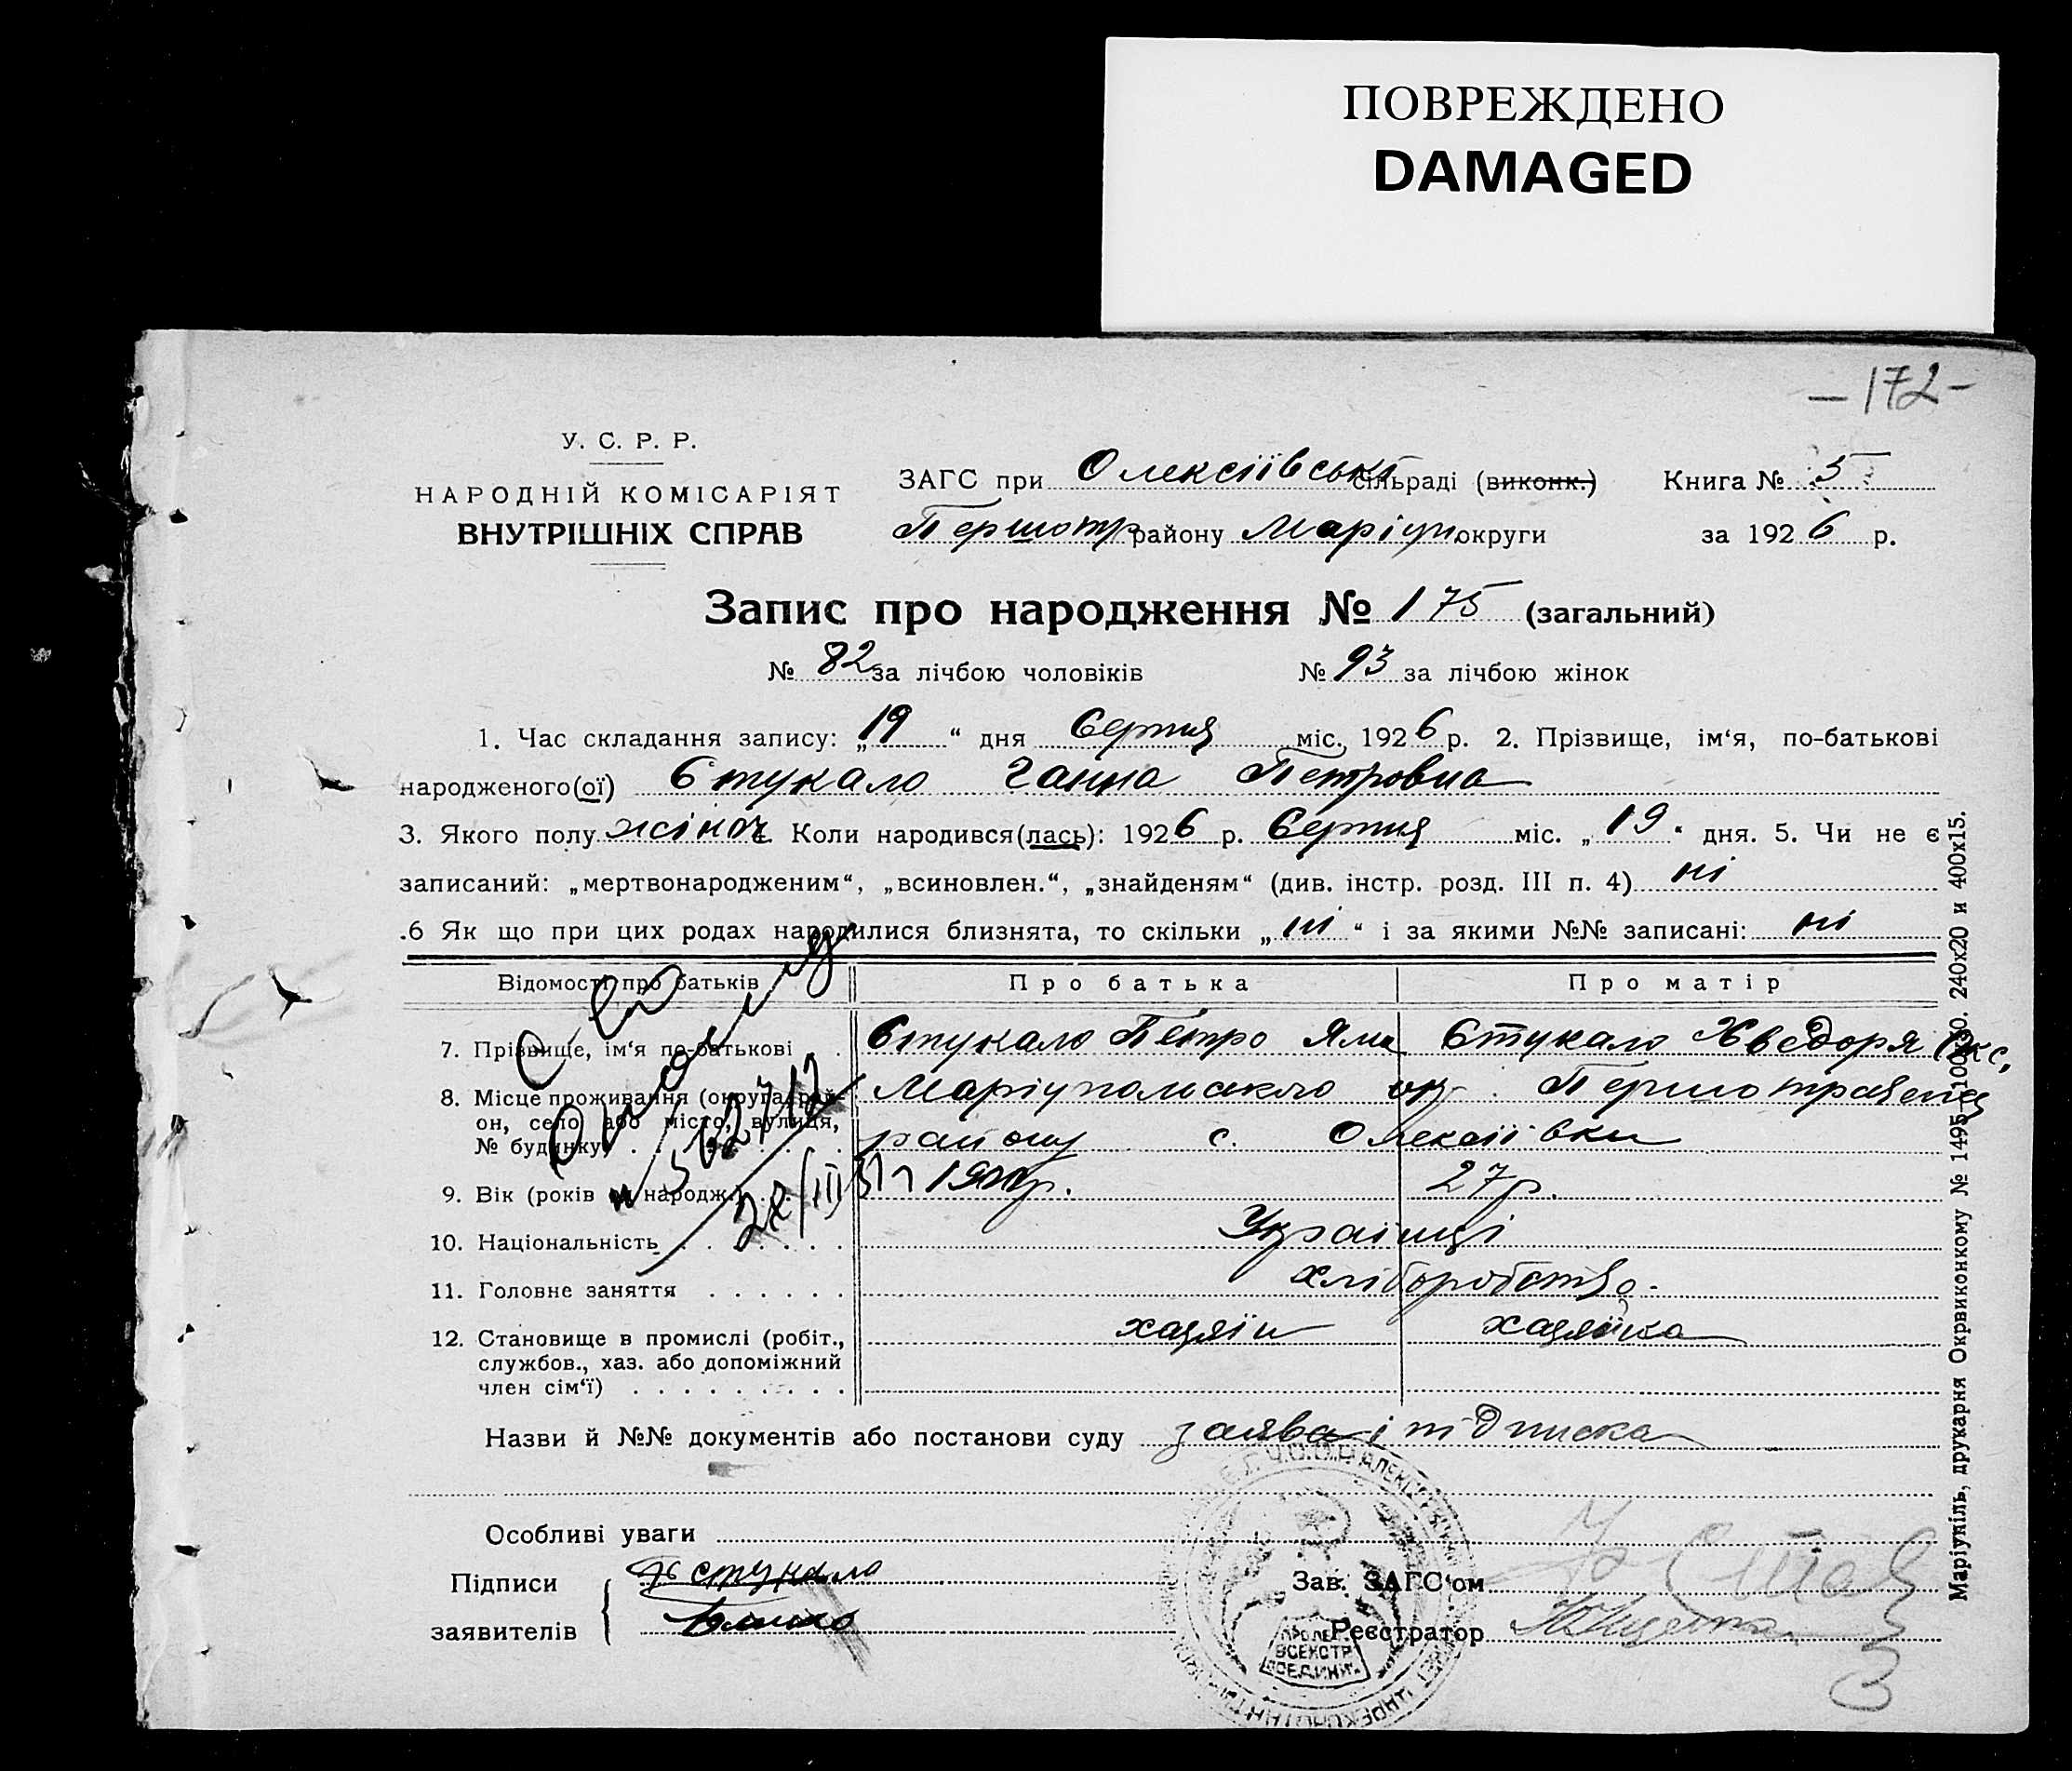 ПОВРЕЖДЕНО
DAMAGED
—172—
У. С. Р. Р.
НАРОДНІЙ КОМІСАРІЯТ
ВНУТРІШНІХ СПРАВ
ЗАГС при Олексіївські сільраді (виконк.) Книга № 5
Першотр району Маріуп округи за 1926 р.
Запис про народження № 175 (загальний)
№ 82 за лічбою чоловіків № 93 за лічбою жінок
1. Час складання запису: „19“ дня Серпня міс. 1926 р. 2. Прізвище, ім‘я, по-батькові
народженого(ої) Стукало Ганна Петровна
3. Якого полу жіноч. Коли народився(лась): 1926 р. Серпня міс. „19“ дня. 5. Чи не є
записаний: „мертвонародженим“, „всиновлен.“, „знайденям“ (див. інстр. розд. III п. 4) ні
.6 Як що при цих родах народилися близнята, то скільки „ні“ і за якими №№ записані: ні
Відомості про батьків Про батька Про матір
7. Прізвище, ім‘я по-батькові . Стукало Петро Яки Стукало Хведоря
8. Місце проживання (округа, рай- Маріупольскго ок. Першотравеня
он, село або місто, вулиця, району с. Олексіївки
№ будинку) . . .
9. Вік (років від народж.) . . 27р.
10. Національність . . . . . . Українці
11. Головне заняття . . . . . . хліборобство.
12. Становище в промислі (робіт., хазяїн хазяйка
службов., хаз. або допоміжний
член сім‘ї) . . . . . . . . .
Назви й №№ документів або постанови суду заява і підписка
Особливі уваги
Підписи Стукало Зав. ЗАГС‘ом
заявителів Реєстратор
ПРОЛЕТ
ВСЕХ СТР
СОЕДИНИ
3
Маріупіль, друкарня Окрвиконкому № 1495—100.000. 240x20 и 400x15.